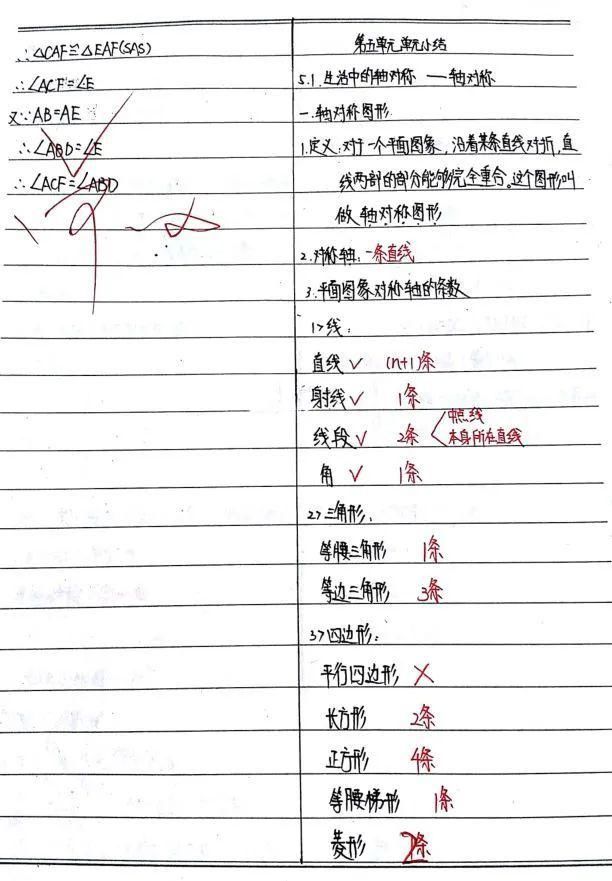 ∴△CAF≌△EAF(SAS)
∴∠ACF=∠E
又∵AB=AE
∴∠ABD=∠E
∴∠ACF=∠ABD
第五单元单元小结
5.1.生活中的轴对称 — 轴对称
一.轴对称图形
1.定义:对于一个平面图象,沿着某条直线对折,直
线两部的部分能够完全重合。这个图形叫
做轴对称图形
2.对称轴:一条直线
3.平面图象对称轴的条数
1>线:
直线 ✓ (n+1)条
射线 ✓ 1条
线段 ✓ 2条
中点线
本身所在直线
角 ✓ 1条
2>三角形:
等腰三角形 1条
等边三角形 3条
3>四边形:
平行四边形 ×
长方形 2条
正方形 4条
等腰梯形 1条
菱形 2条